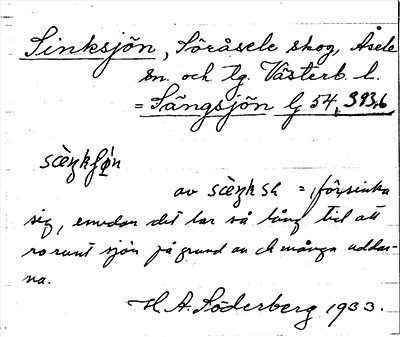 Sinksjön, Söråsele skog, Åsele
sn. och tg. Västerb. l.
= Sängsjön G 54, 393,6
av = försinka
sig, emedan det tar så lång tid att
ro runt sjön på grund av de många uddar-
na.
H. A. Söderberg 1933.